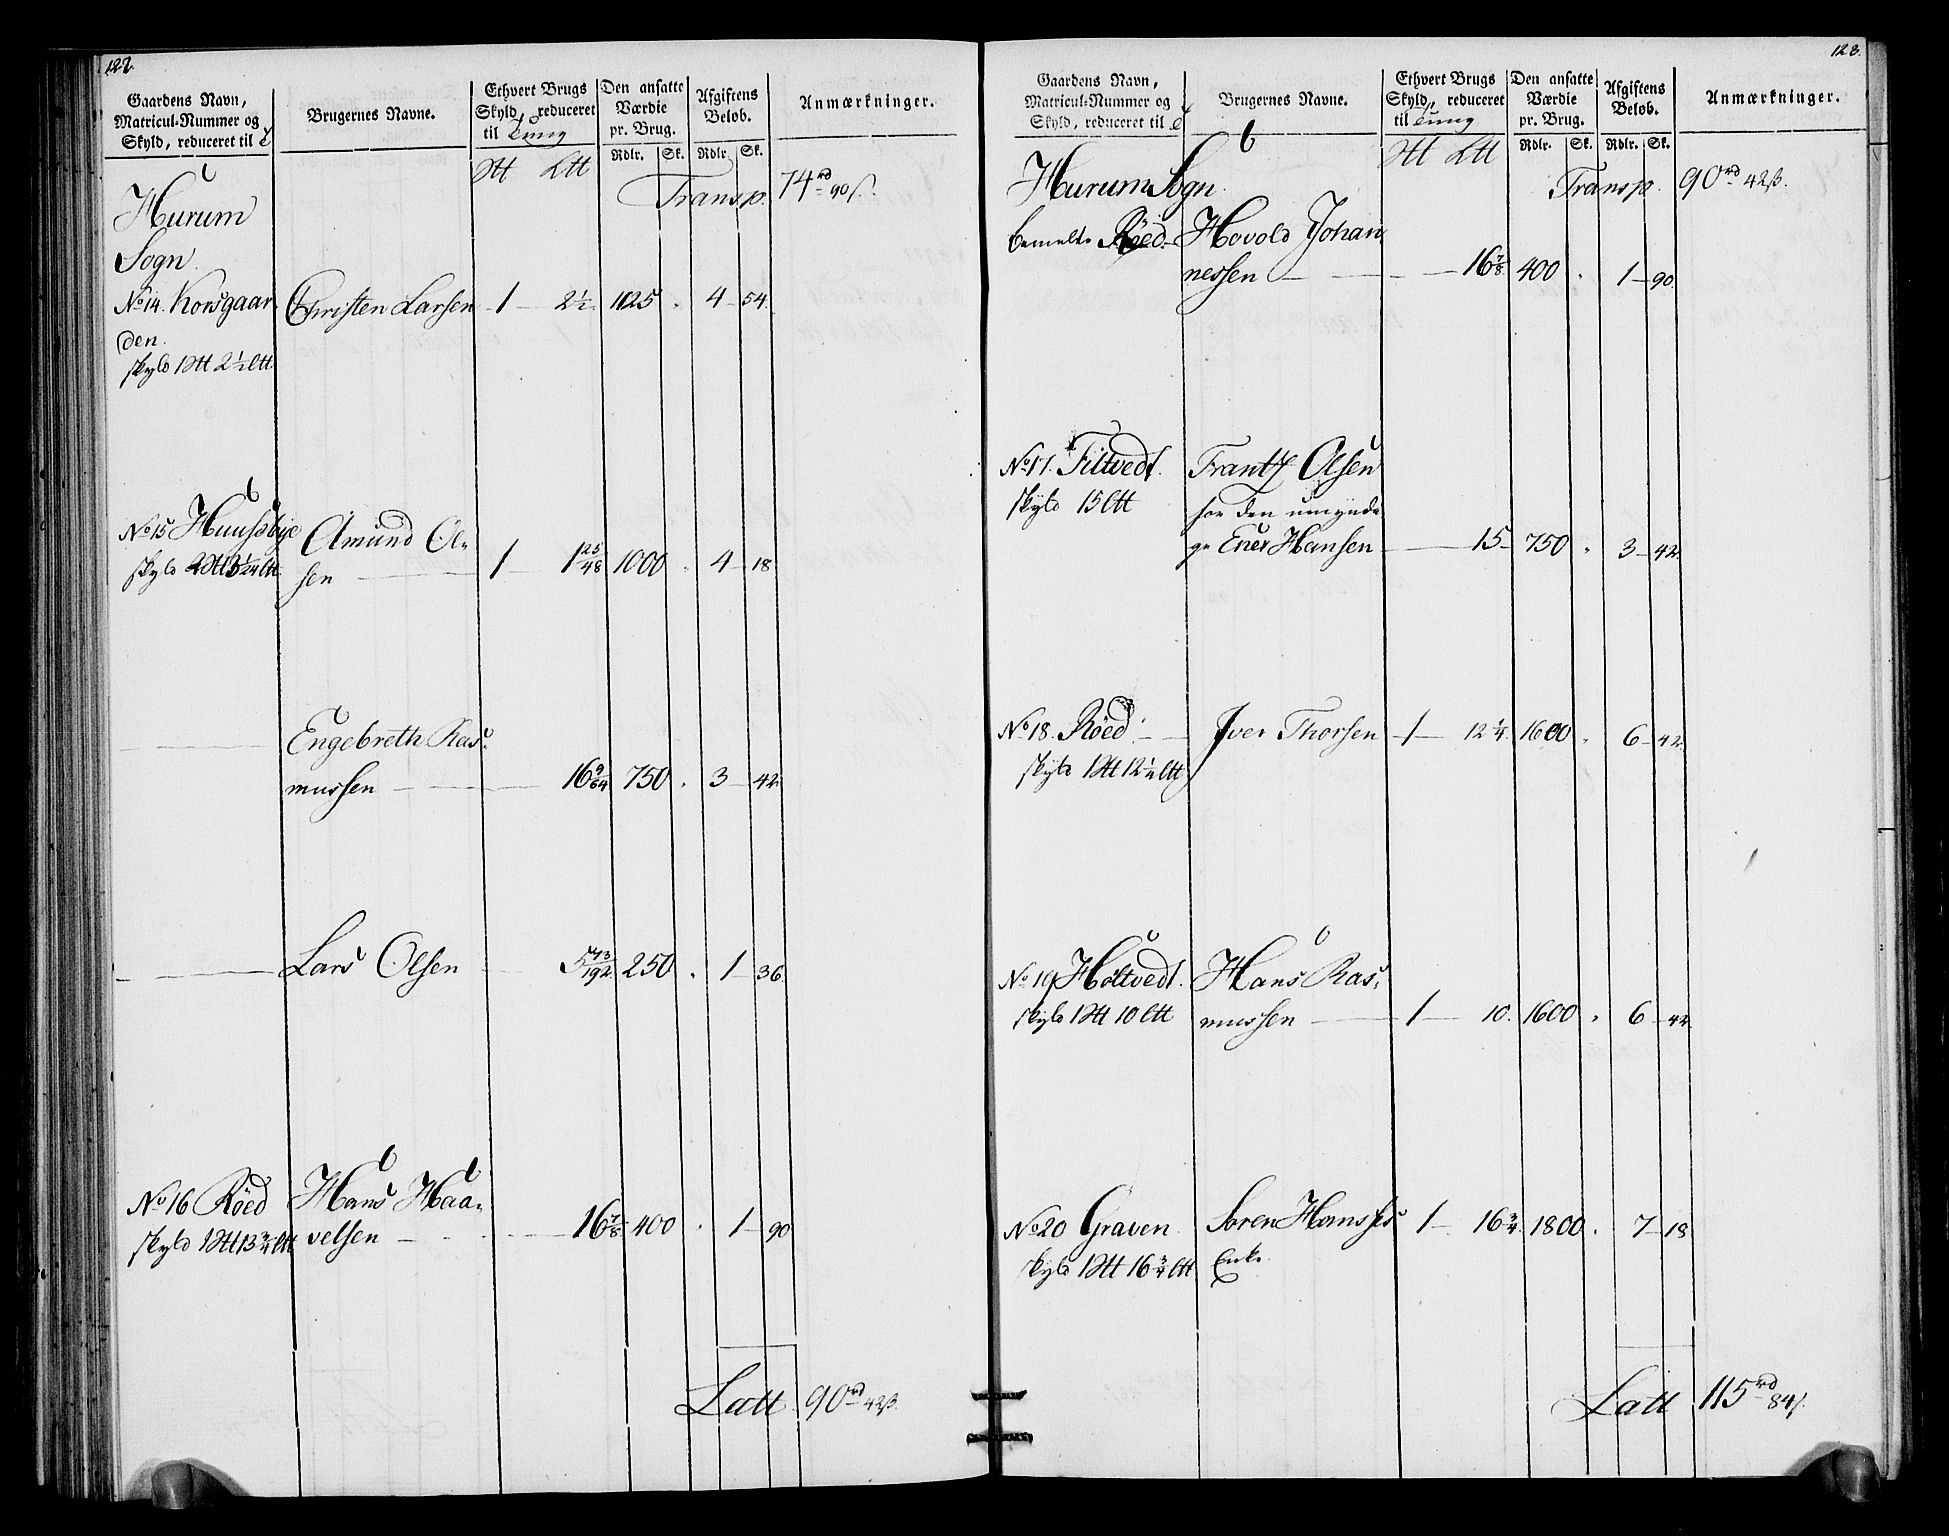 122.
Gaardens Navn,
Matricul-Nummer og
Skyld, reduceret til
Brugernes Navne.
Ethvert Brugs
Skyld, reduceret
til Tung
Den ansatte
Værdie
pr. Brug.
Afgiftens
Beløb.
Anmærkninger.
Rdlr. Sk. Rdlr. Sk.
Hurum
Sogn
Transp. 74rd 90ß.
No 14. Korsgaar
den.
skyld 1 2½
Christen Larsen 1 2½ 1125 . 4 54.
No 15 Huusebye
skyld
Amund Ol-
sen 1 1 25/48 1000 . 4 18
Engebreth Ras-
mussen 16 9/64 750 . 3 42
Lars Olsen 5 43/192 250 . 1 36.
No 16 Röed
skyld 1 13¾
Hans Haa-
velsen 16 7/8 400 . 1 90
Latt. 90rd 42ß.
123.
Gaardens Navn,
Matricul-Nummer og
Skyld, reduceret til
Brugernes Navne.
Ethvert Brugs
Skyld, reduceret
til Tung
Den ansatte
Værdie
pr. Brug.
Afgiftens
Beløb.
Anmærkninger.
Rdlr. Sk. Rdlr. Sk.
Hurum Sogn.
Transp. 90rd 42ß.
bemelte Röed. Hovold Johan
nessen 16 7/8 400 . 1 90.
No 17. Tiltvedt.
skyld 15
Frantz Olsen
for den umyndi
ge Ener Hansen 15 750 . 3 42.
No 18. Röed
skyld 1 12¼
Iver Thorsen 1 12¼ 1600 . 6 42.
No 19 Holtvedt.
skyld 1 10
Hans Ras-
mussen 1 10. 1600 . 6 42
No 20 Graven
skyld 1 16¾
Søren Hanses
Enke. 1 16¾ 1800 . 7 18
Latt 115rd 84ß.